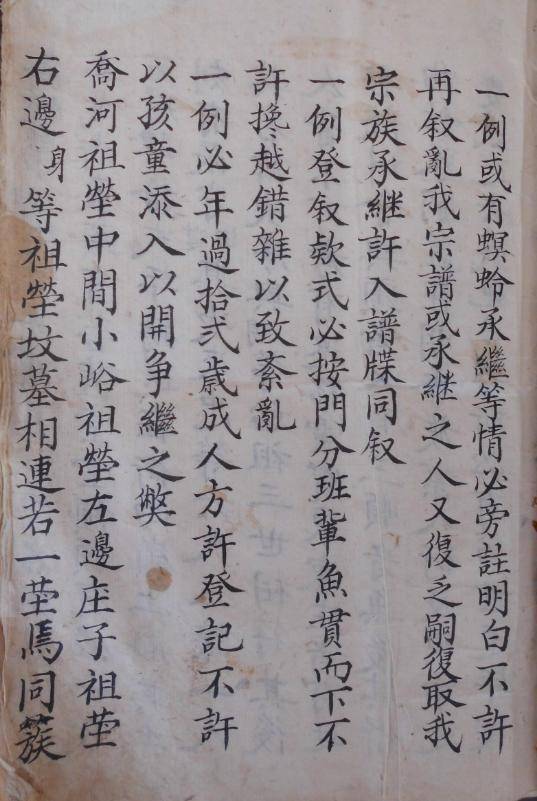 一例或有螟蛉承繼等情必旁註明白不許
再叙亂我宗譜或承継之人又復乏嗣復取我
宗族承継許入譜牒同叙
一例登叙欵式必按門分班輩魚貫而下不
許搀越錯雜以致紊亂
一例必年過拾弍歳成人方許登記不許
以孩童添入以開争繼之獘
喬河祖塋中間小峪祖塋左邊庄子祖茔
右邊身等祖塋坟墓相連若一茔焉同簇